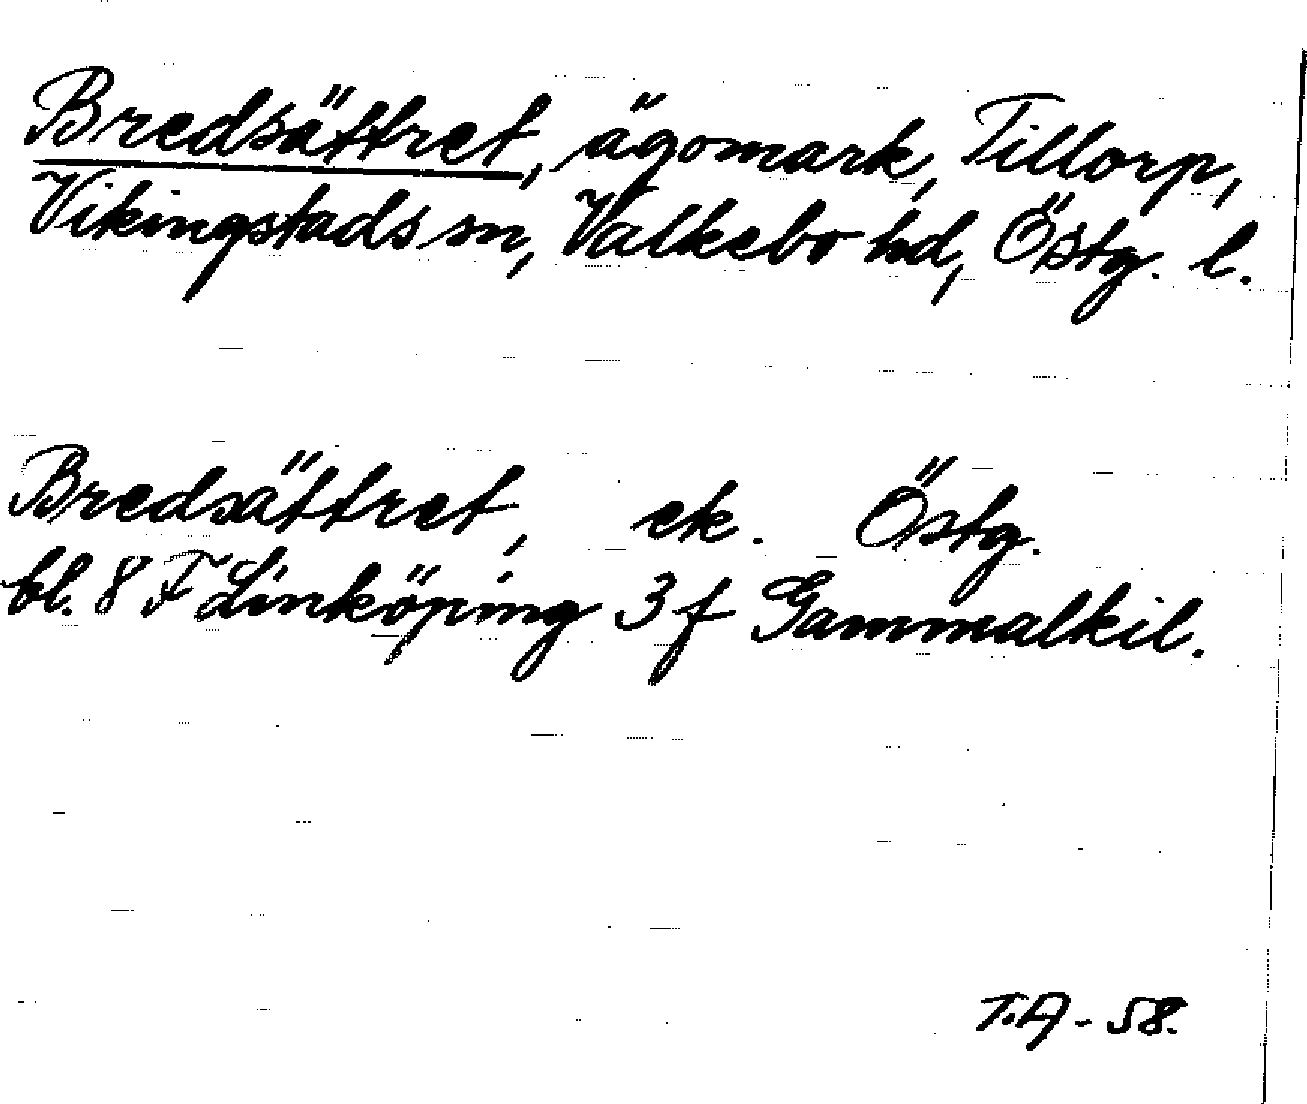 Bredsättret, ägomark, Tillorp,
Vikingstads sn, Valkebo hd, Östg. l.
Bredsättret, ek. Östg.
bl. 8 F Linköping 3 f Gammalkil.
T.A - 58.